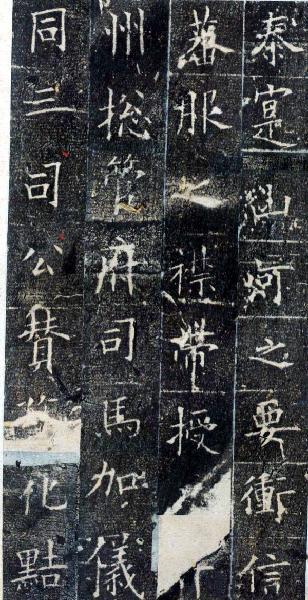 秦寔山河之要衝信
蕃服之襟帶授
州揔管府司馬加儀
同三司公贊務化黠